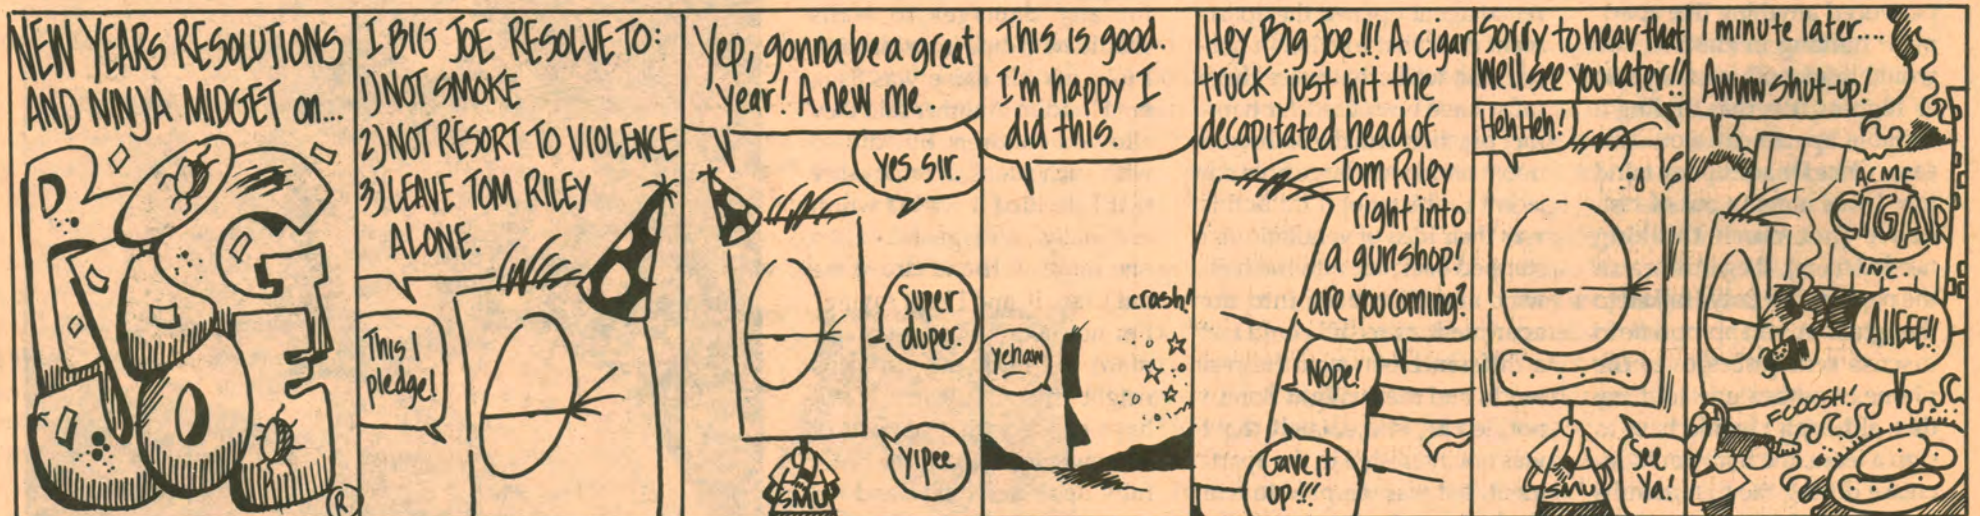 NEW YEARS RESOLUTIONS
AND NINJA MIDGET on...
BIG
JOE
R
I BIG JOE RESOLVE TO:
1) NOT SMOKE
2) NOT RESORT TO VIOLENCE
3) LEAVE TOM RILEY
ALONE.
This
pledge!
Yep, gonna be a great
year! A new me.
yes sir.
Super
duper.
Yipee
SMU
This is good.
I'm happy I
did this.
yehaw
crash!
Hey Big Joe!!! A cigar
truck just hit the
decapitated head of
Tom Riley
right into
a gunshop!
are you coming?
Nope!
Gave it
up!!!
Sorry to hear that
We'll see you later!!
Heh Heh!
SMU
1 minute later....
Awww shut-up!
ACME
CIGAR
INC
AIIEEE!!
FCOOSH!
yee
Ya!